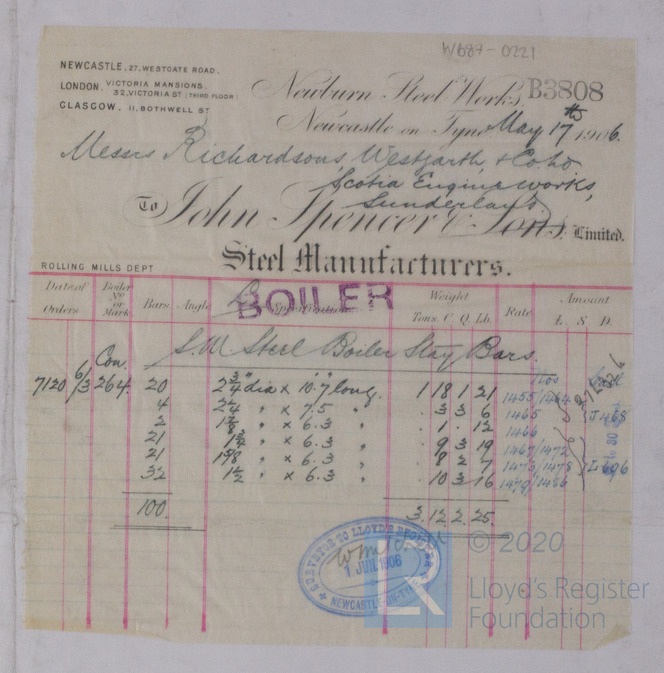 W687-0221
NEWCASTLE, 27, WESTGATE ROAD.
LONDON, VICTORIA MANSIONS, 32, VICTORIA ST (THIRD FLOOR)
GLASGOW, 11, BOTHWELL ST
Newburn Steel Works, B3808
Newcastle on Tyne May 17th 1906.
Messrs Richardsons Westgarth & Co. Ld
Scotia Engine Works,
Sunderland
To John Spencer & Sons, Limited.
Steel Manufacturers.
ROLLING MILLS DEPT
BOILER
Date of Orders Boiler No or Mark Bars. Angle Weight Tons. C. Q. Lb. Rate Amount £. S. D.
S.M. Steel Boiler Stay Bars.
Con. Nos
7120 6/3 264. 20 2 3/4" dia x 10.7 long. 1 18 1 21 1455/1464
4 2 1/4 " x 7.5 " . 3 3 6 1465 J468
2 1 7/8 " x 6.3 " . 1 . 12 1466
21 1 3/4 " x 6.3 " . 9 3 19 1467/1472
21 1 5/8 " x 6.3 " . 8 2 7 1473/1478 L606
32 1 1/2 " x 6.3 " . 10 3 16 1479/1486
100. 3. 12 2. 25.
SURVEYOR TO LLOYD'S REGISTER
1 JUN 1906
NEWCASTLE-ON-TYNE
LR
© 2020
Lloyd's Register
Foundation